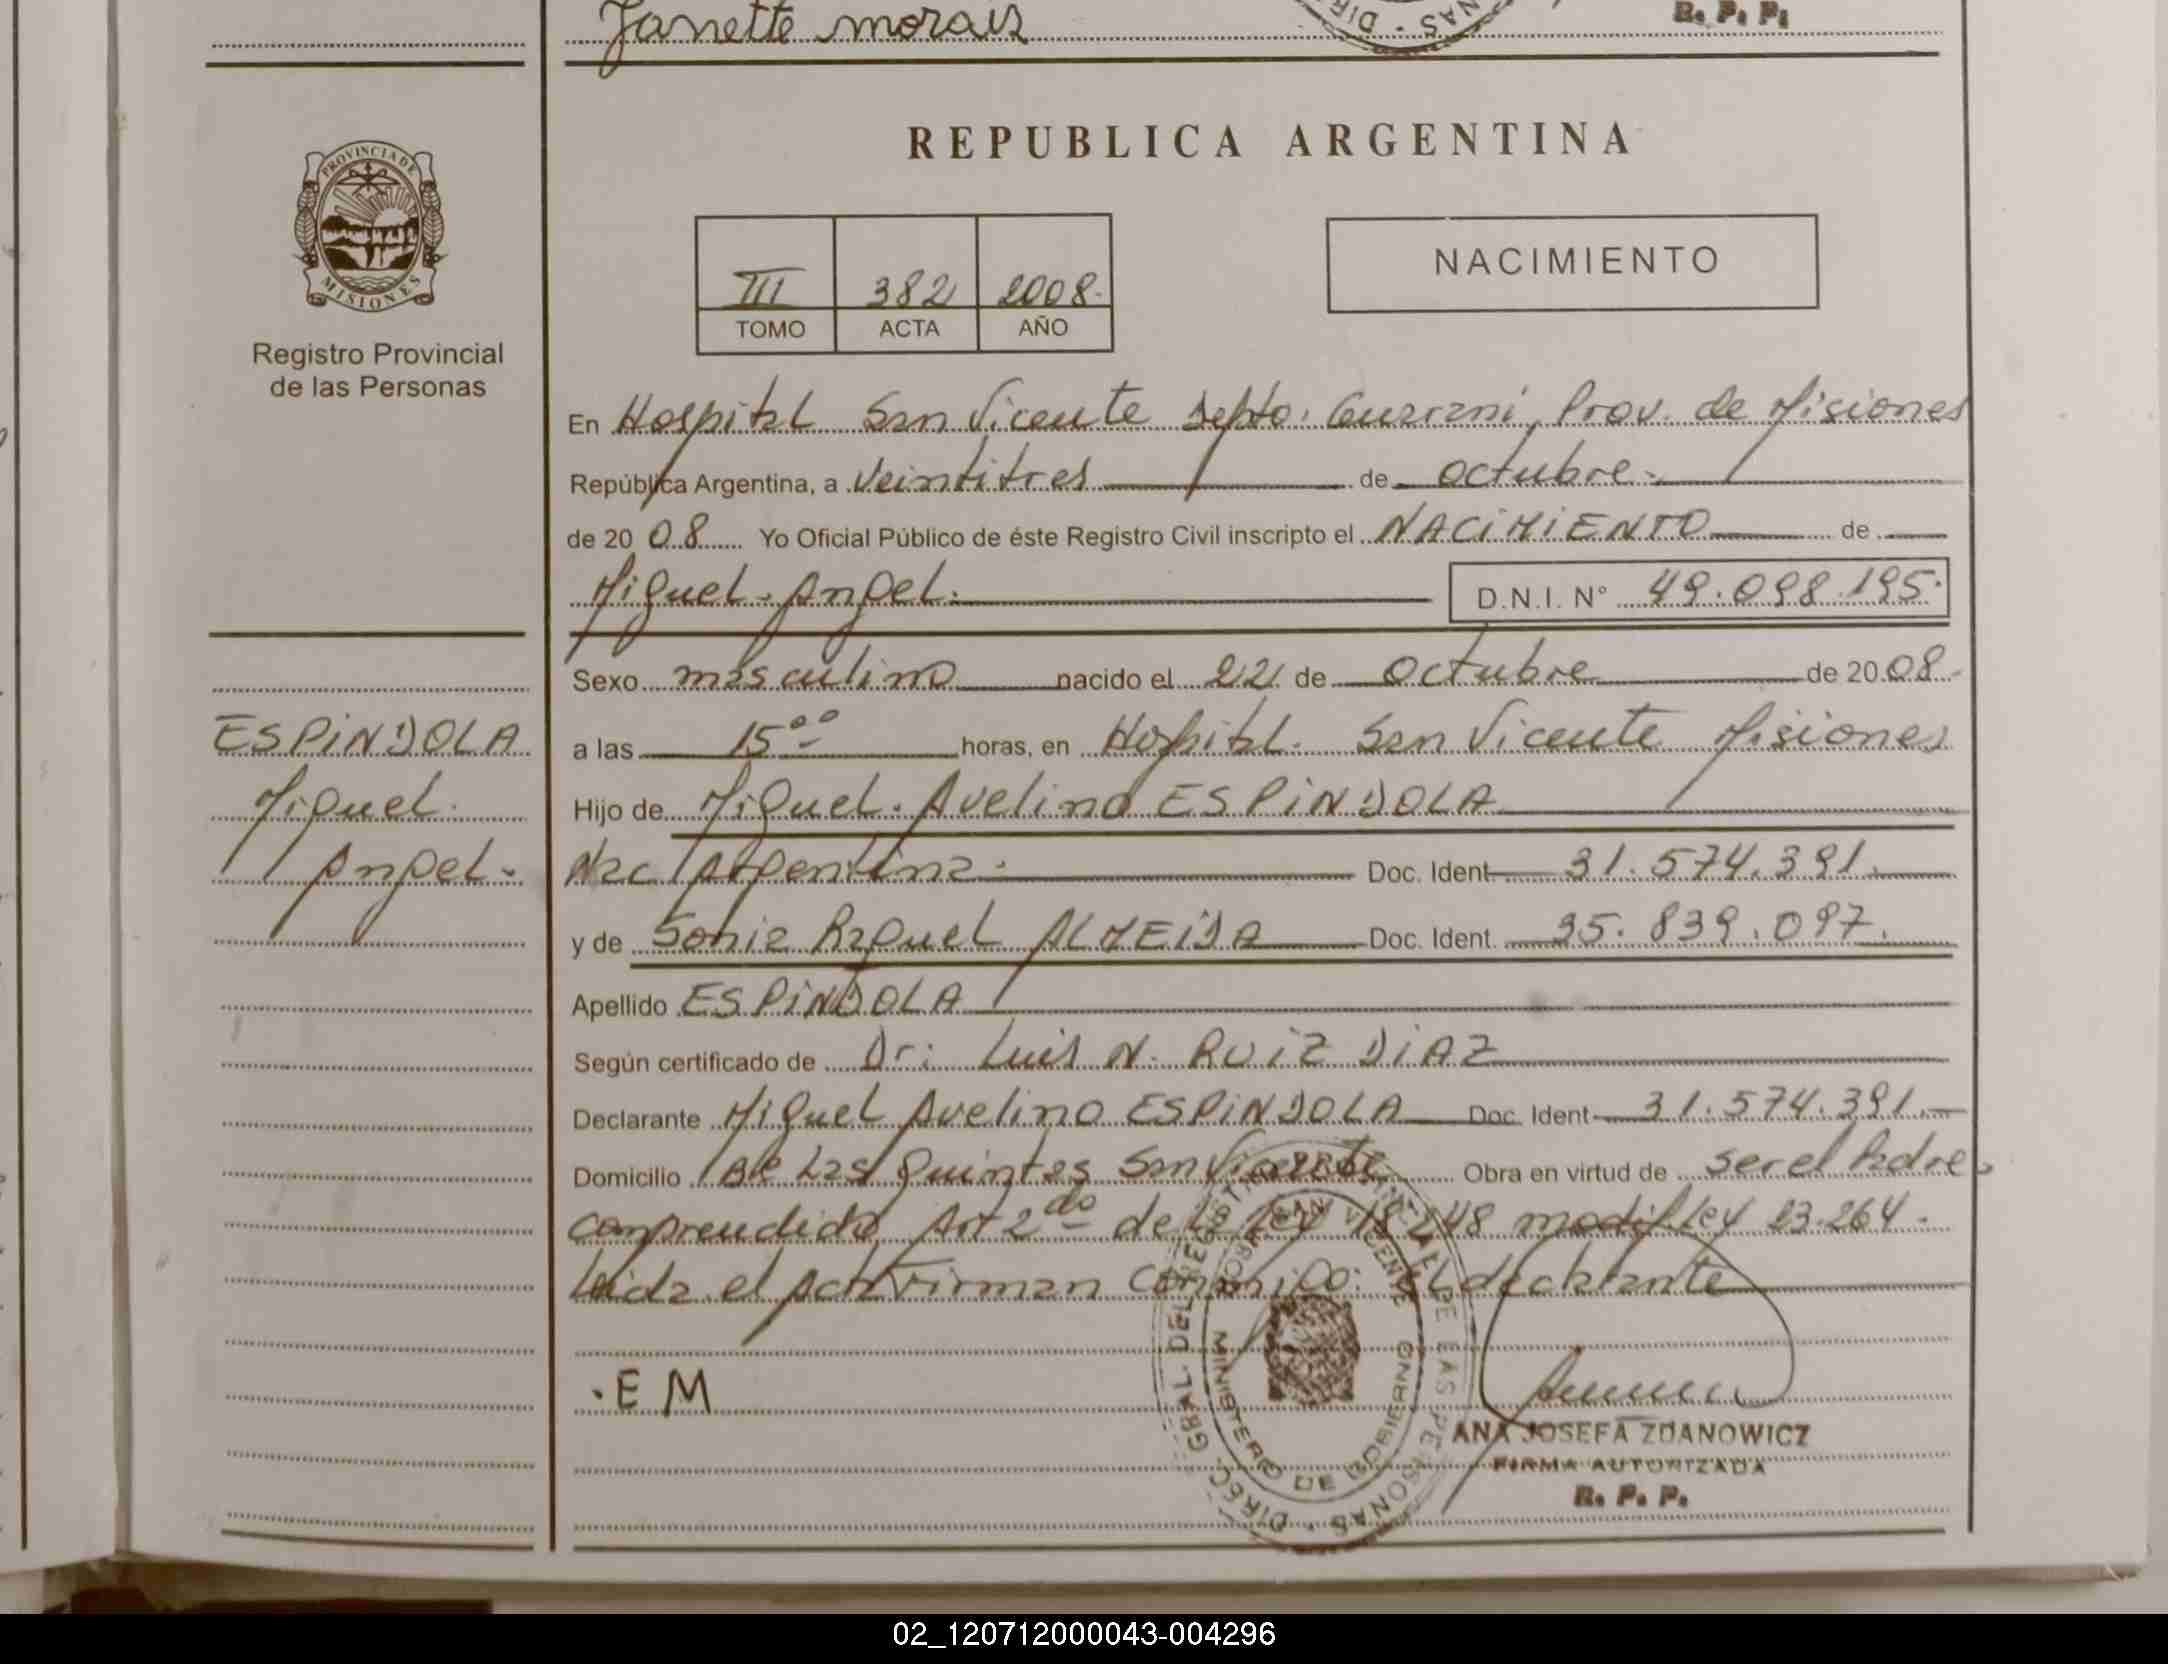 Janette morais
DIR NAS
R. P. P.
PROVINCIA DE
MISIONES
Registro Provincial
de las Personas
REPUBLICA ARGENTINA
III 382 2008.
TOMO ACTA AÑO
NACIMIENTO
En Hospital San Vicente Depto. Guarani, Prov. de Misiones
República Argentina, a veintitres de octubre.
de 20 08 Yo Oficial Público de éste Registro Civil inscripto el NACIMIENTO de
Miguel Angel. D.N.I. N° 49.098.195.
Sexo masculino nacido el 22 de octubre de 20 08.
ESPINDOLA
Miguel
Angel.
a las 15°° horas, en Hospital San Vicente Misiones
Hijo de Miguel Avelino ESPINDOLA
Nac Argentina. Doc. Ident 31.574.391.
y de Sonia Raquel ALMEIDA Doc. Ident. 35.839.097.
Apellido ESPINDOLA
Según certificado de Dr: Luis N. RUIZ DIAZ
Declarante Miguel Avelino ESPINDOLA Doc. Ident 31.574.391.
Domicilio Las Quintas San Vicente Obra en virtud de ser el Padre
comprendido Art 2do de la Ley 18248 modif Ley 23.264.
Leida el acta Firman conmigo: El declarante
.E M
DIREC. GRAL. DEL REGISTRO PROVINCIAL DE LAS PERSONAS
SAN VICENTE
MINISTERIO DE GOBIERNO
ANA JOSEFA ZDANOWICZ
FIRMA AUTORIZADA
R. P. P.
02_120712000043-004296